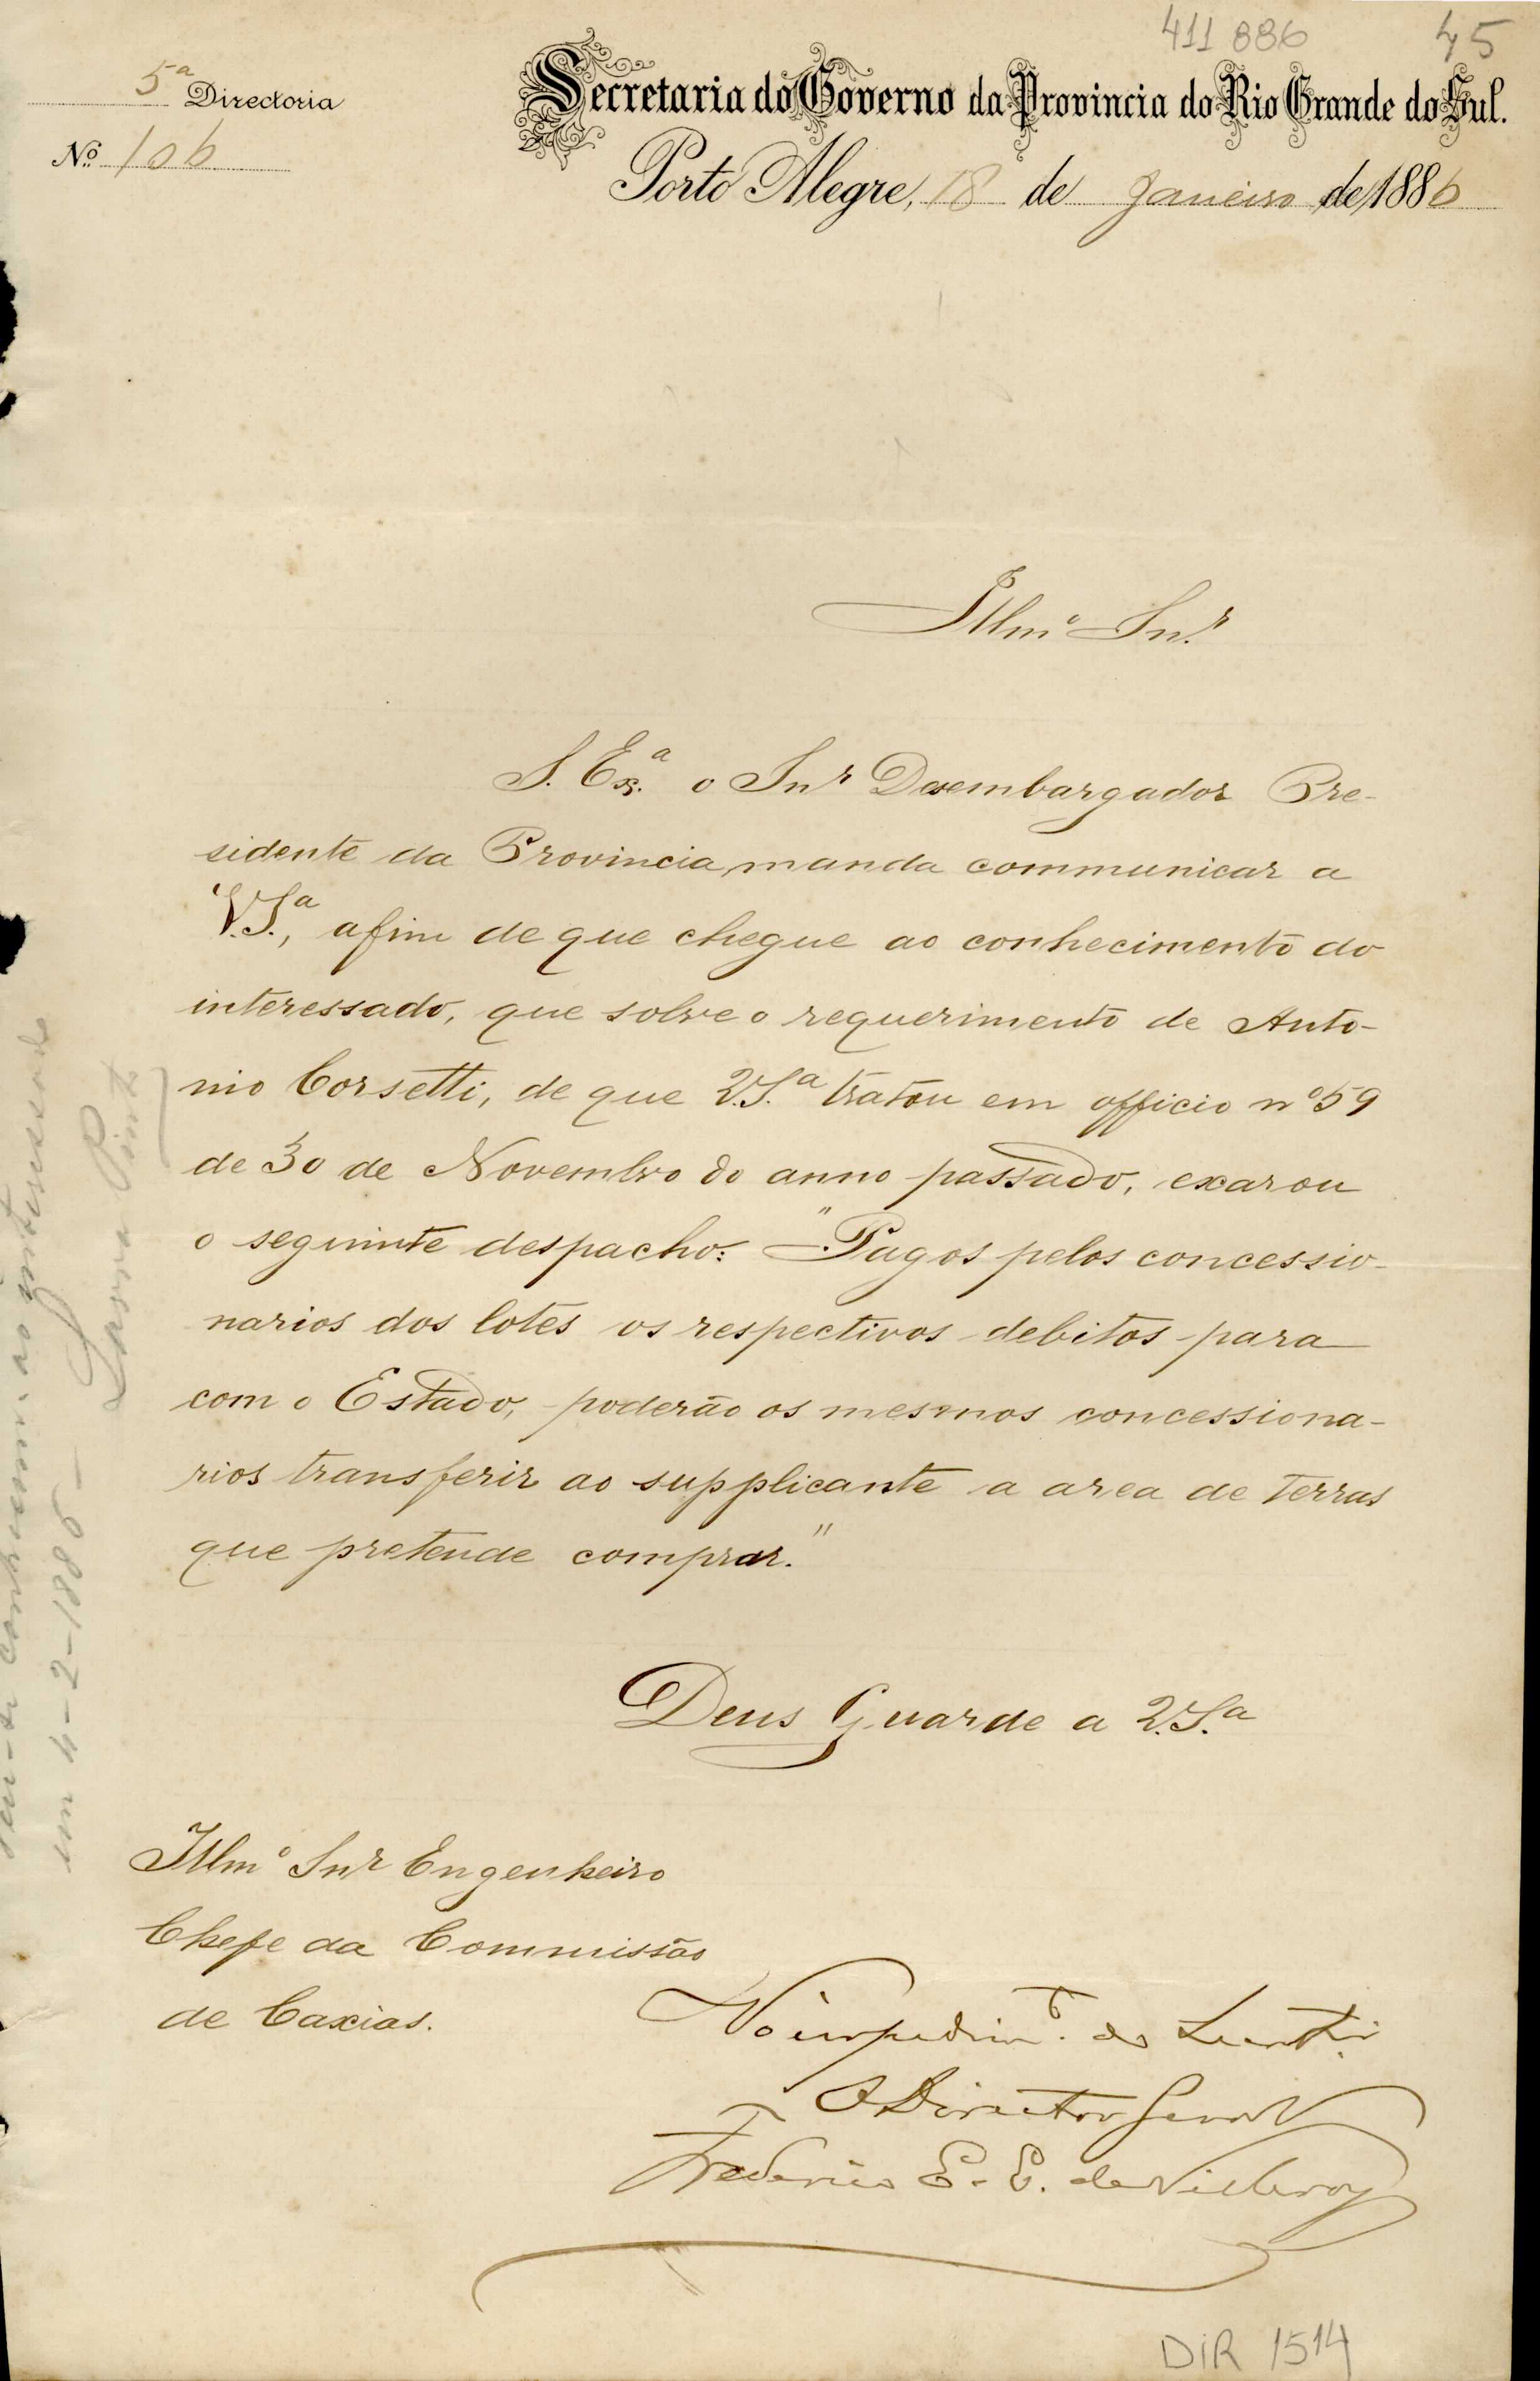 411 886
45
5ª Directoria
Nº 106
Secretaria do Governo da Provincia do Rio Grande do Sul.
Porto Alegre, 18 de Janeiro de 1886
Illmº Snr.
S. Exª. o Snr Desembargador Pre-
sidente da Provincia, manda communicar a
V.Sª, afim de que chegue ao conhecimento do
interessado, que sobre o requerimento de Anto-
nio Corsetti, de que V.Sª tratou em officio nº 59
de 30 de Novembro do anno passado, exarou
o seguinte despacho: "Pagos pelos concessio-
narios dos lotes os respectivos debitos para
com o Estado, poderão os mesmos concessiona-
rios transferir ao supplicante a area de terras
que pretende comprar."
Deus Guarde a V.Sª
Illmº Snr Engenheiro
Chefe da Commissão
de Caxias.
No impedimtº. do
O Director Geral
Frederico E. E. de Villeroy
ao interessado
em 4-2-1886-
DIR 1514